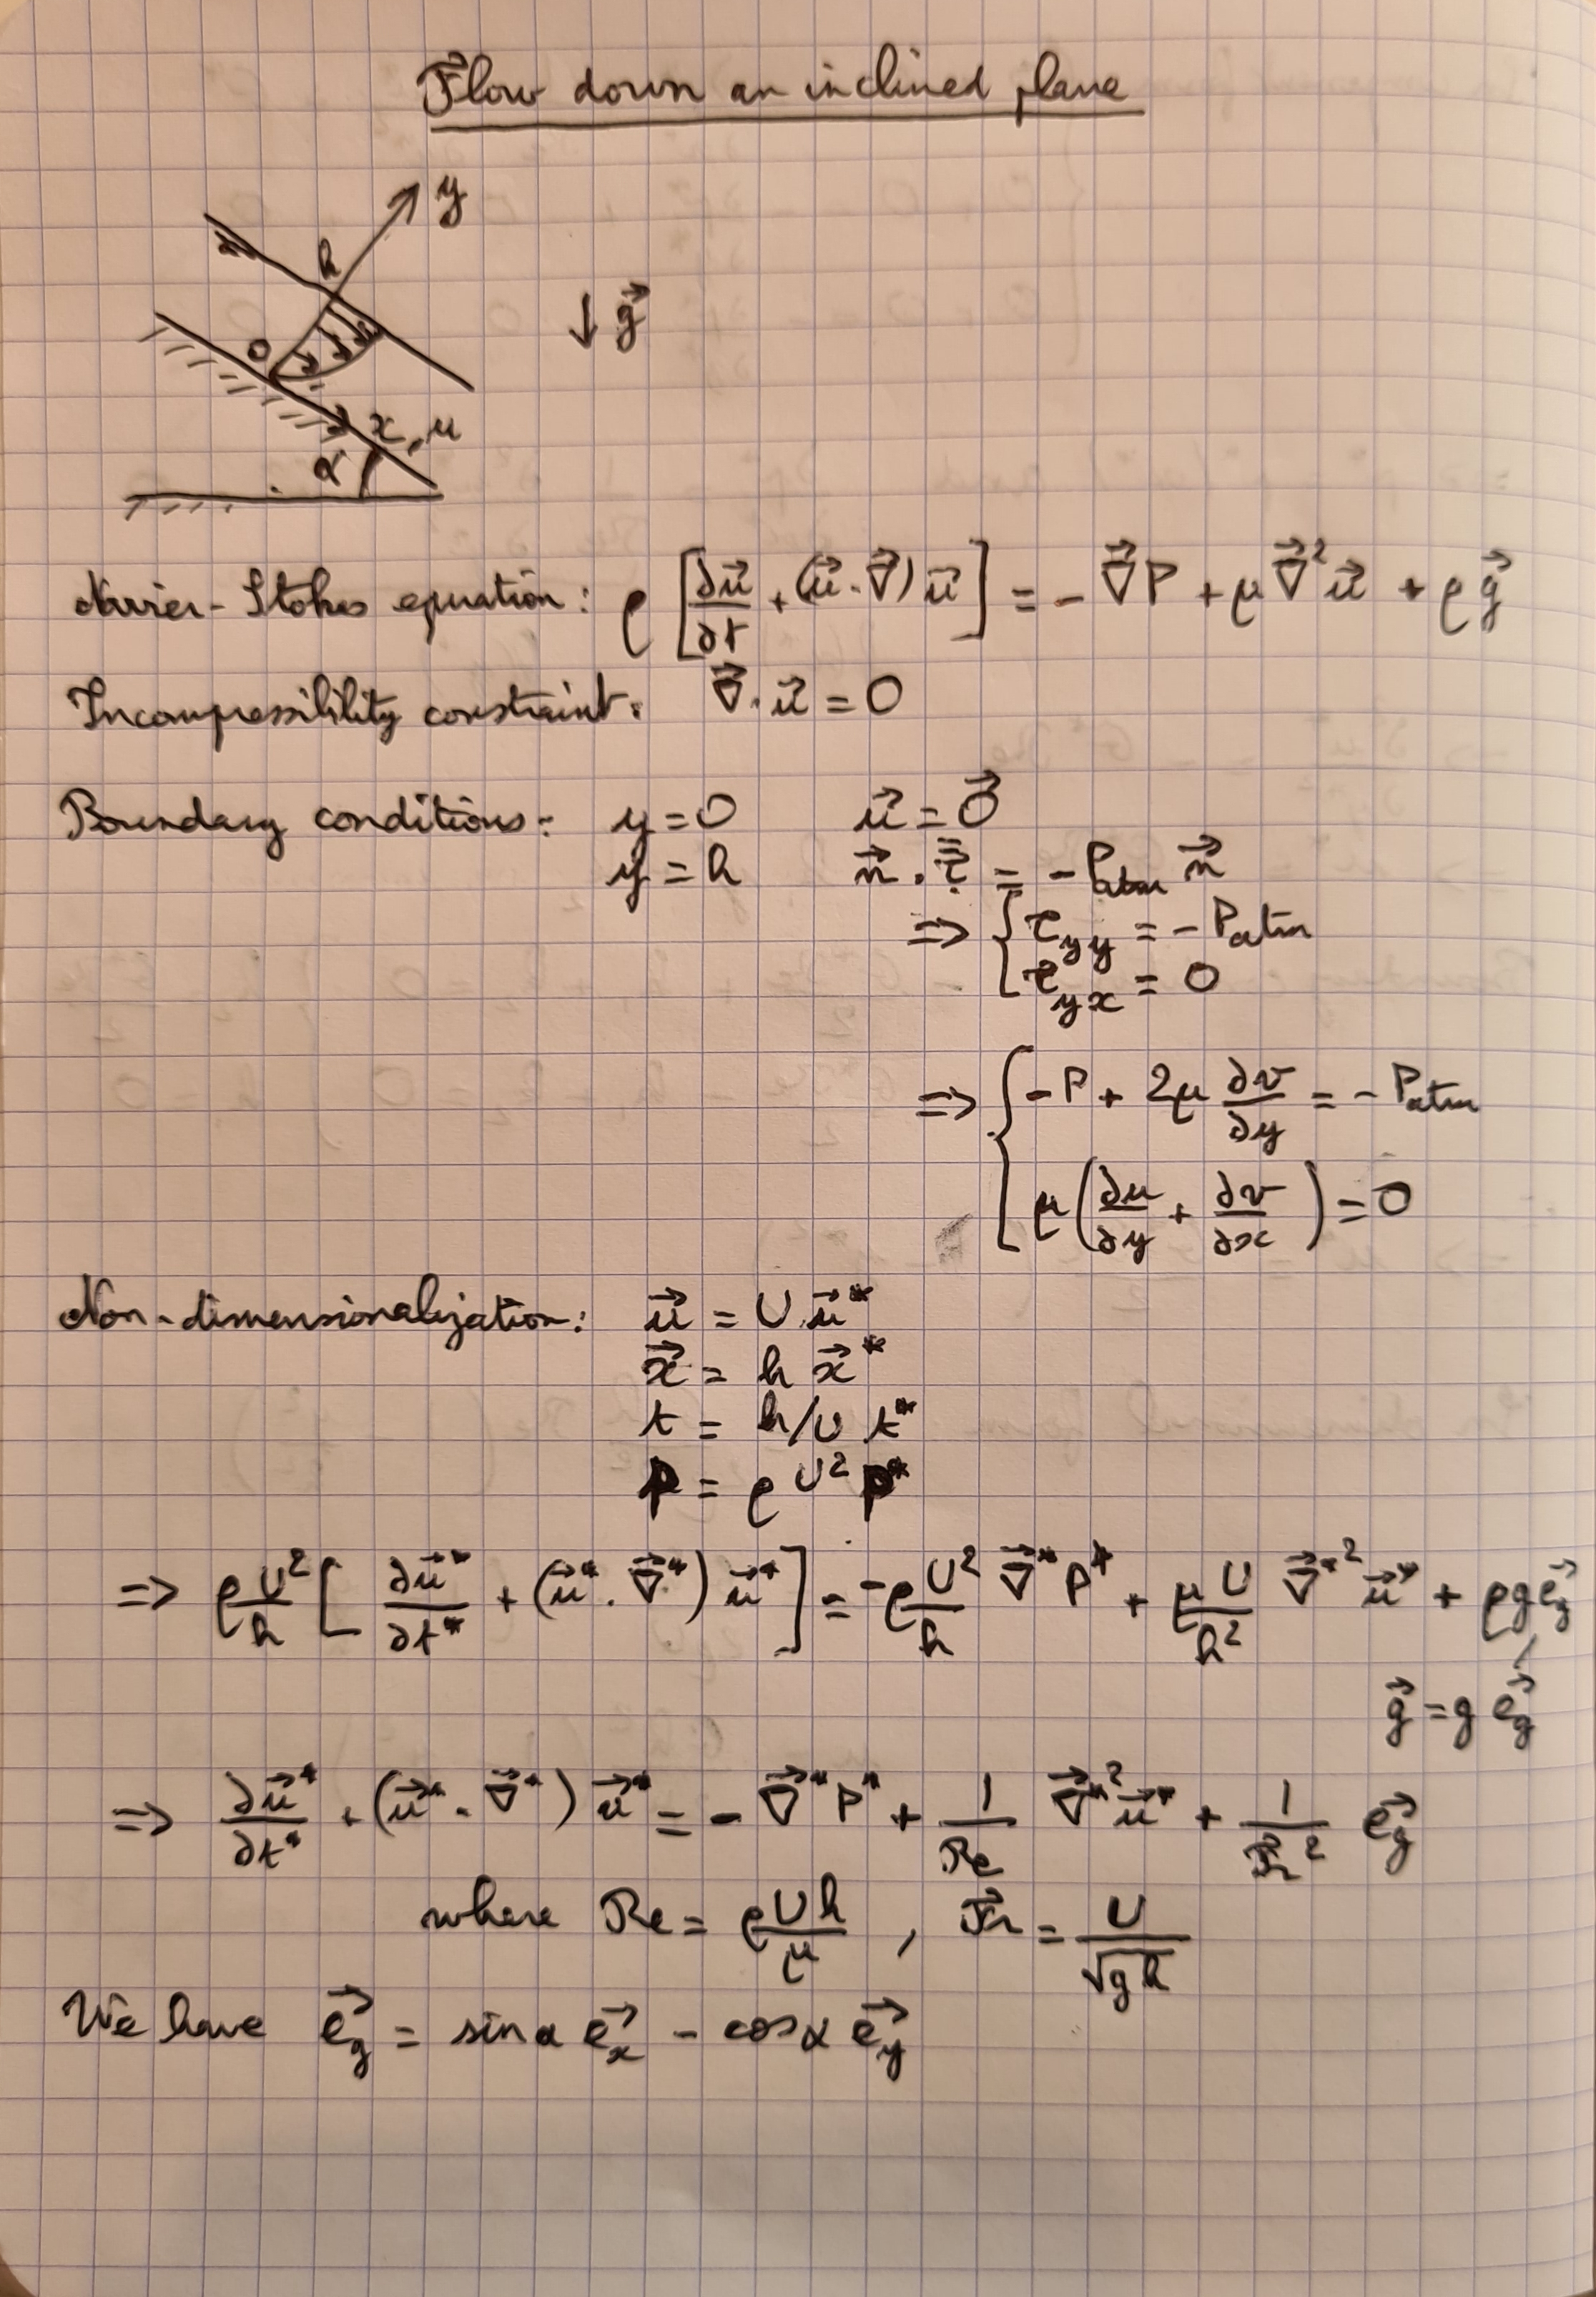 Flow down an inclined plane
y
h
↓ g⃗
0
x, u
α
Navier-Stokes equation: ρ [∂u⃗/∂t + (u⃗ · ∇⃗) u⃗] = - ∇⃗P + μ ∇⃗² u⃗ + ρ g⃗
Incompressibility constraint: ∇⃗ · u⃗ = 0
Boundary conditions: y = 0 u⃗ = 0⃗
y = h n⃗ · τ̿ = - Patm n⃗
=> { τyy = - Patm
τyx = 0
=> { - P + 2μ ∂v/∂y = - Patm
μ (∂u/∂y + ∂v/∂x) = 0
Non-dimensionalization: u⃗ = U u⃗*
x⃗ = h x⃗*
t = h/U t*
p = ρ U² p*
=> ρ U²/h [ ∂u⃗*/∂t* + (u⃗* · ∇⃗*) u⃗* ] = - ρ U²/h ∇⃗* P* + μ U/h² ∇⃗*² u⃗* + ρ g e⃗g
g⃗ = g e⃗g
=> ∂u⃗*/∂t* + (u⃗* · ∇⃗*) u⃗* = - ∇⃗* P* + 1/Re ∇⃗*² u⃗* + 1/Fr² e⃗g
where Re = ρUh/μ , Fr = U/√gh
We have e⃗g = sin α e⃗x - cos α e⃗y